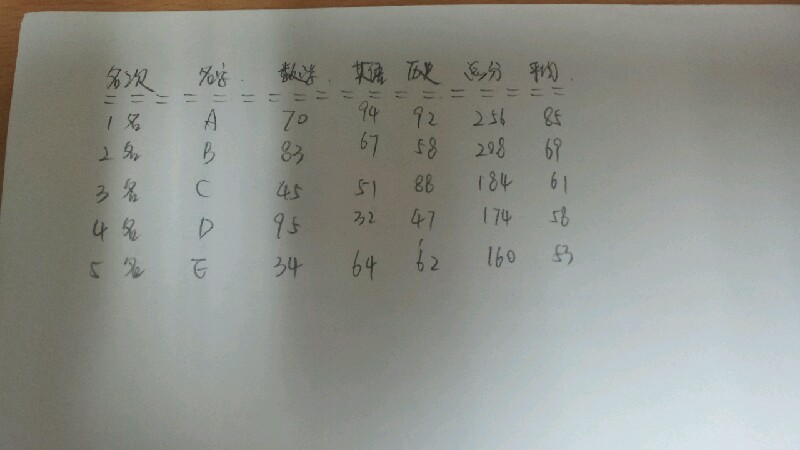 名次 名字 数学 英语 历史 总分 平均
= = = = = = = = = = = = = = = = = = =
1名 A 70 94 92 256 85
2名 B 83 67 58 208 69
3名 C 45 51 88 184 61
4名 D 95 32 47 174 58
5名 E 34 64 62 160 53